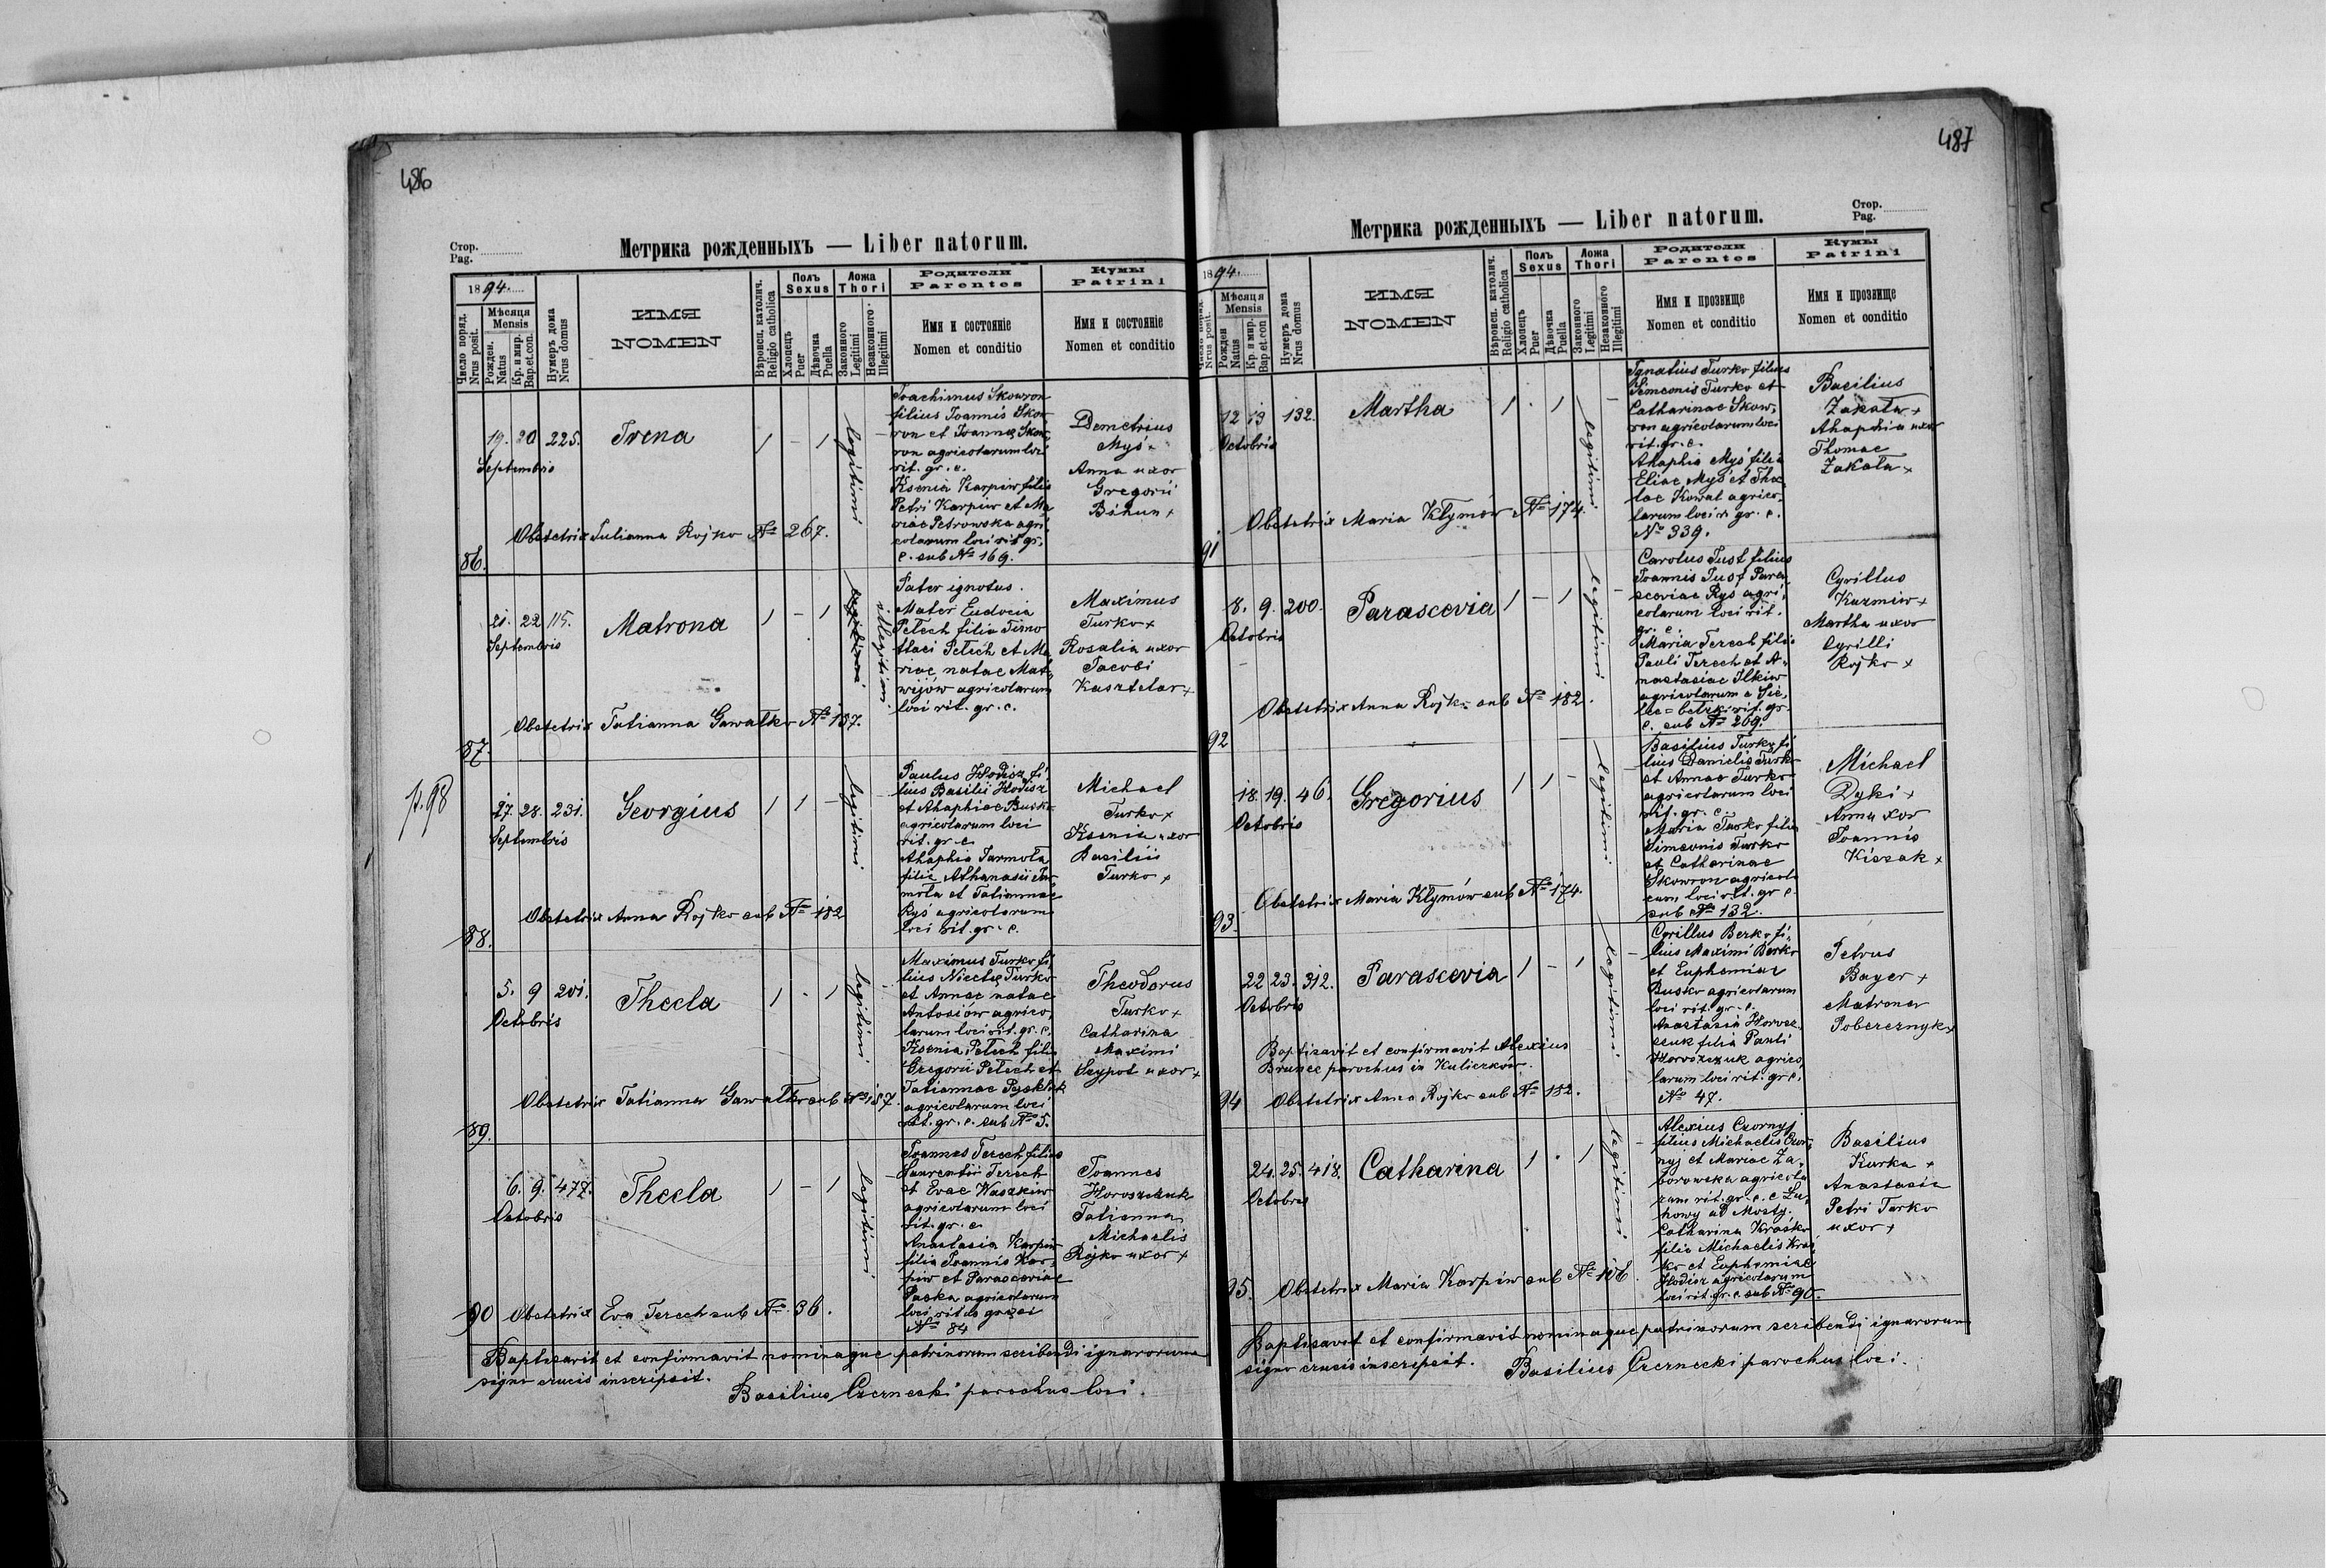 486
Стор.
Pag.
Метрика рожденныхъ — Liber natorum.
1894.
Число поряд.
Nrus posit.
Мѣсяця
Mensis
Рожден.
Natus
Кр. и мир.
Bap.et.con.
Нумеръ дома
Nrus domus
ИМЯ
NOMEN
Вѣроисп. католич.
Religio catholica
Полъ
Sexus
Хлопецъ
Puer
Дѣвочка
Puella
Ложа
Thori
Законного
Legitimi
Незаконного
Illegitimi
Родители
Parentes
Имя и состояніе
Nomen et conditio
Кумы
Patrini
Имя и состояніе
Nomen et conditio
86.
19. 20 225.
Septembris
Irena
1 - 1
legitimi
Joachimus Skowron
filius Joannis Skow
ron et Joannae Skow
ron agricolarum loci
rit. gr. c.
Ksenia Karpiw filia
Petri Karpiw et Ma
riae Petrowska agri
colarum loci rit gr.
c. sub No 169.
Demetrius
Myś +
Anna uxor
Gregorii
Bihun +
Obstetrix Julianna Rojko No 267.
87.
21. 22 115.
Septembris
Matrona
1 - 1
legitimi
illegitimi
Pater ignotus.
Mater Eudocia
Petech filia Timo
thaei Petech et Ma
riae natae Mat
wijów agricolarum
loci rit. gr. c.
Maximus
Turko +
Rosalia uxor
Jacobi
Kasztelar +
Obstetrix Tatianna Gawałko No 187.
p. 98
88.
27. 28. 231.
Septembris
Georgius
1 1 -
legitimi
Paulus Hodisz fi
lius Basilii Hodisz
et Ahaphiae Busko
agricolarum loci
rit. gr. c.
Ahaphia Jarmoła
filia Athanasii Jar
moła et Tatiannae
Ryś agricolarum
loci rit. gr. c.
Michael
Turko +
Ksenia uxor
Basilii
Turko +
Obstetrix Anna Rojko sub No 182
89.
5. 9 201.
Octobris
Thecla
1 - 1
legitimi
Maximus Turko fi
lius Nicetae Turko
et Annae natae
Antosiów agrico
larum loci rit. gr. c.
Ksenia Petech filia
Gregorii Petech et
Tatiannae
agricolarum loci
rit. gr. c. sub No 5.
Theodorus
Turko +
Catharina
Maximi
Scypot uxor +
Obstetrix Tatianna Gawałko sub No 187.
90
6. 9. 477.
Octobris
Thecla
1 - 1
legitimi
Joannes Terech filius
Laurentii Terech
et Evae Waszkiw
agricolarum loci
rit. gr. c.
Anastasia Karpiw
filia Joannis Kar
piw et Parasceviae
Paska agricolarum
loci ritus graeci
No 84
Joannes
Horoszczuk
Tatianna
Michaelis
Rojko uxor +
Obstetrix Eva Terech sub No 36.
Baptisavit et confirmavit nominaque patrinorum scribendi ignarorum
signo crucis inscripsit.
Basilius Czernecki parochus loci.
487
Стор.
Pag.
Метрика рожденныхъ — Liber natorum.
1894.
Число поряд.
Nrus posit.
Мѣсяця
Mensis
Рожден
Natus
Кр. и мир.
Bap.et.con
Нумеръ дома
Nrus domus
ИМЯ
NOMEN
Вѣроисп. католич.
Religio catholica
Полъ
Sexus
Хлопецъ
Puer
Дѣвочка
Puella
Ложа
Thori
Законного
Legitimi
Незаконного
Illegitimi
Родители
Parentes
Имя и прозвище
Nomen et conditio
Кумы
Patrini
Имя и прозвище
Nomen et conditio
91
12 13 132.
Octobris
Martha
1 . 1
legitimi
Ignatius Turko filius
Simeonis Turko et
Catharinae Skow
ron agricolarum loci
rit. gr. c.
Ahaphia Myś filia
Eliae Myś et Thec
lae Kowal agrico
larum loci r. gr. c.
No 339.
Basilius
Zakała +
Ahaphia uxor
Thomae
Zakała +
Obstetrix Maria Kłymów No 174.
92
8. 9. 200.
Octobris
Parascevia
1 - 1
legitimi
Carolus Just filius
Joannis Just Para
sceviae Ryś agri
colarum loci rit.
gr. c.
Maria Terech filia
Pauli Terech et A
nastasiae Ilkiw
agricolarum e Sie
lec = betzki rit. gr.
c. sub No 269.
Cyrillus
Kuzmiw +
Martha uxor
Cyrilli
Rojko +
Obstetrix Anna Rojko sub No 182.
93
18. 19. 46.
Octobris
Gregorius
1 1 -
legitimi
Basilius Turko fi
lius Danielis Turko
et Annae Turko
agricolarum loci
rit. gr. c.
Maria Turko filia
Simeonis Turko
et Catharinae
Skowron agricola
rum loci rit. gr c.
sub No 132.
Michael
Dyki +
Anna uxor
Joannis
Kiczak +
Obstetrix Maria Kłymów sub No 174.
94
22 23. 312.
Octobris
Parascevia
1 - 1
legitimi
Cyrillus Berko fi
lius Maximi Berko
et Euphemiae
Busko agricolarum
loci rit. gr. c.
Anastasia Horosz
czuk filia Pauli
Horoszczuk agrico
larum loci rit. gr c.
No 47.
Petrus
Bayer +
Matrona
Pobereznyk +
Baptisavit et confirmavit Alexius
Brunec parochus in Kuliczków.
Obstetrix Anna Rojko sub No 182.
95.
24. 25. 418.
Octobris
Catharina
1 . 1
legitimi
Alexius Czornyj
filius Michaelis Czor
nyj et Mariae Za
borowska agricola
rum rit. gr. c. e Lu
howy ad Mosty.
Catharina Kraśko
filia Michaelis Kraś
ko et Euphemiae
Hodisz agricolarum
loci rit. gr. c. sub No 90.
Basilius
Kurka +
Anastasia
Petri Turko
uxor +
Obstetrix Maria Karpiw sub No 106.
Baptisavit et confirmavit nominaque patrinorum scribendi ignarorum
signo crucis inscripsit.
Basilius Czernecki parochus loci.